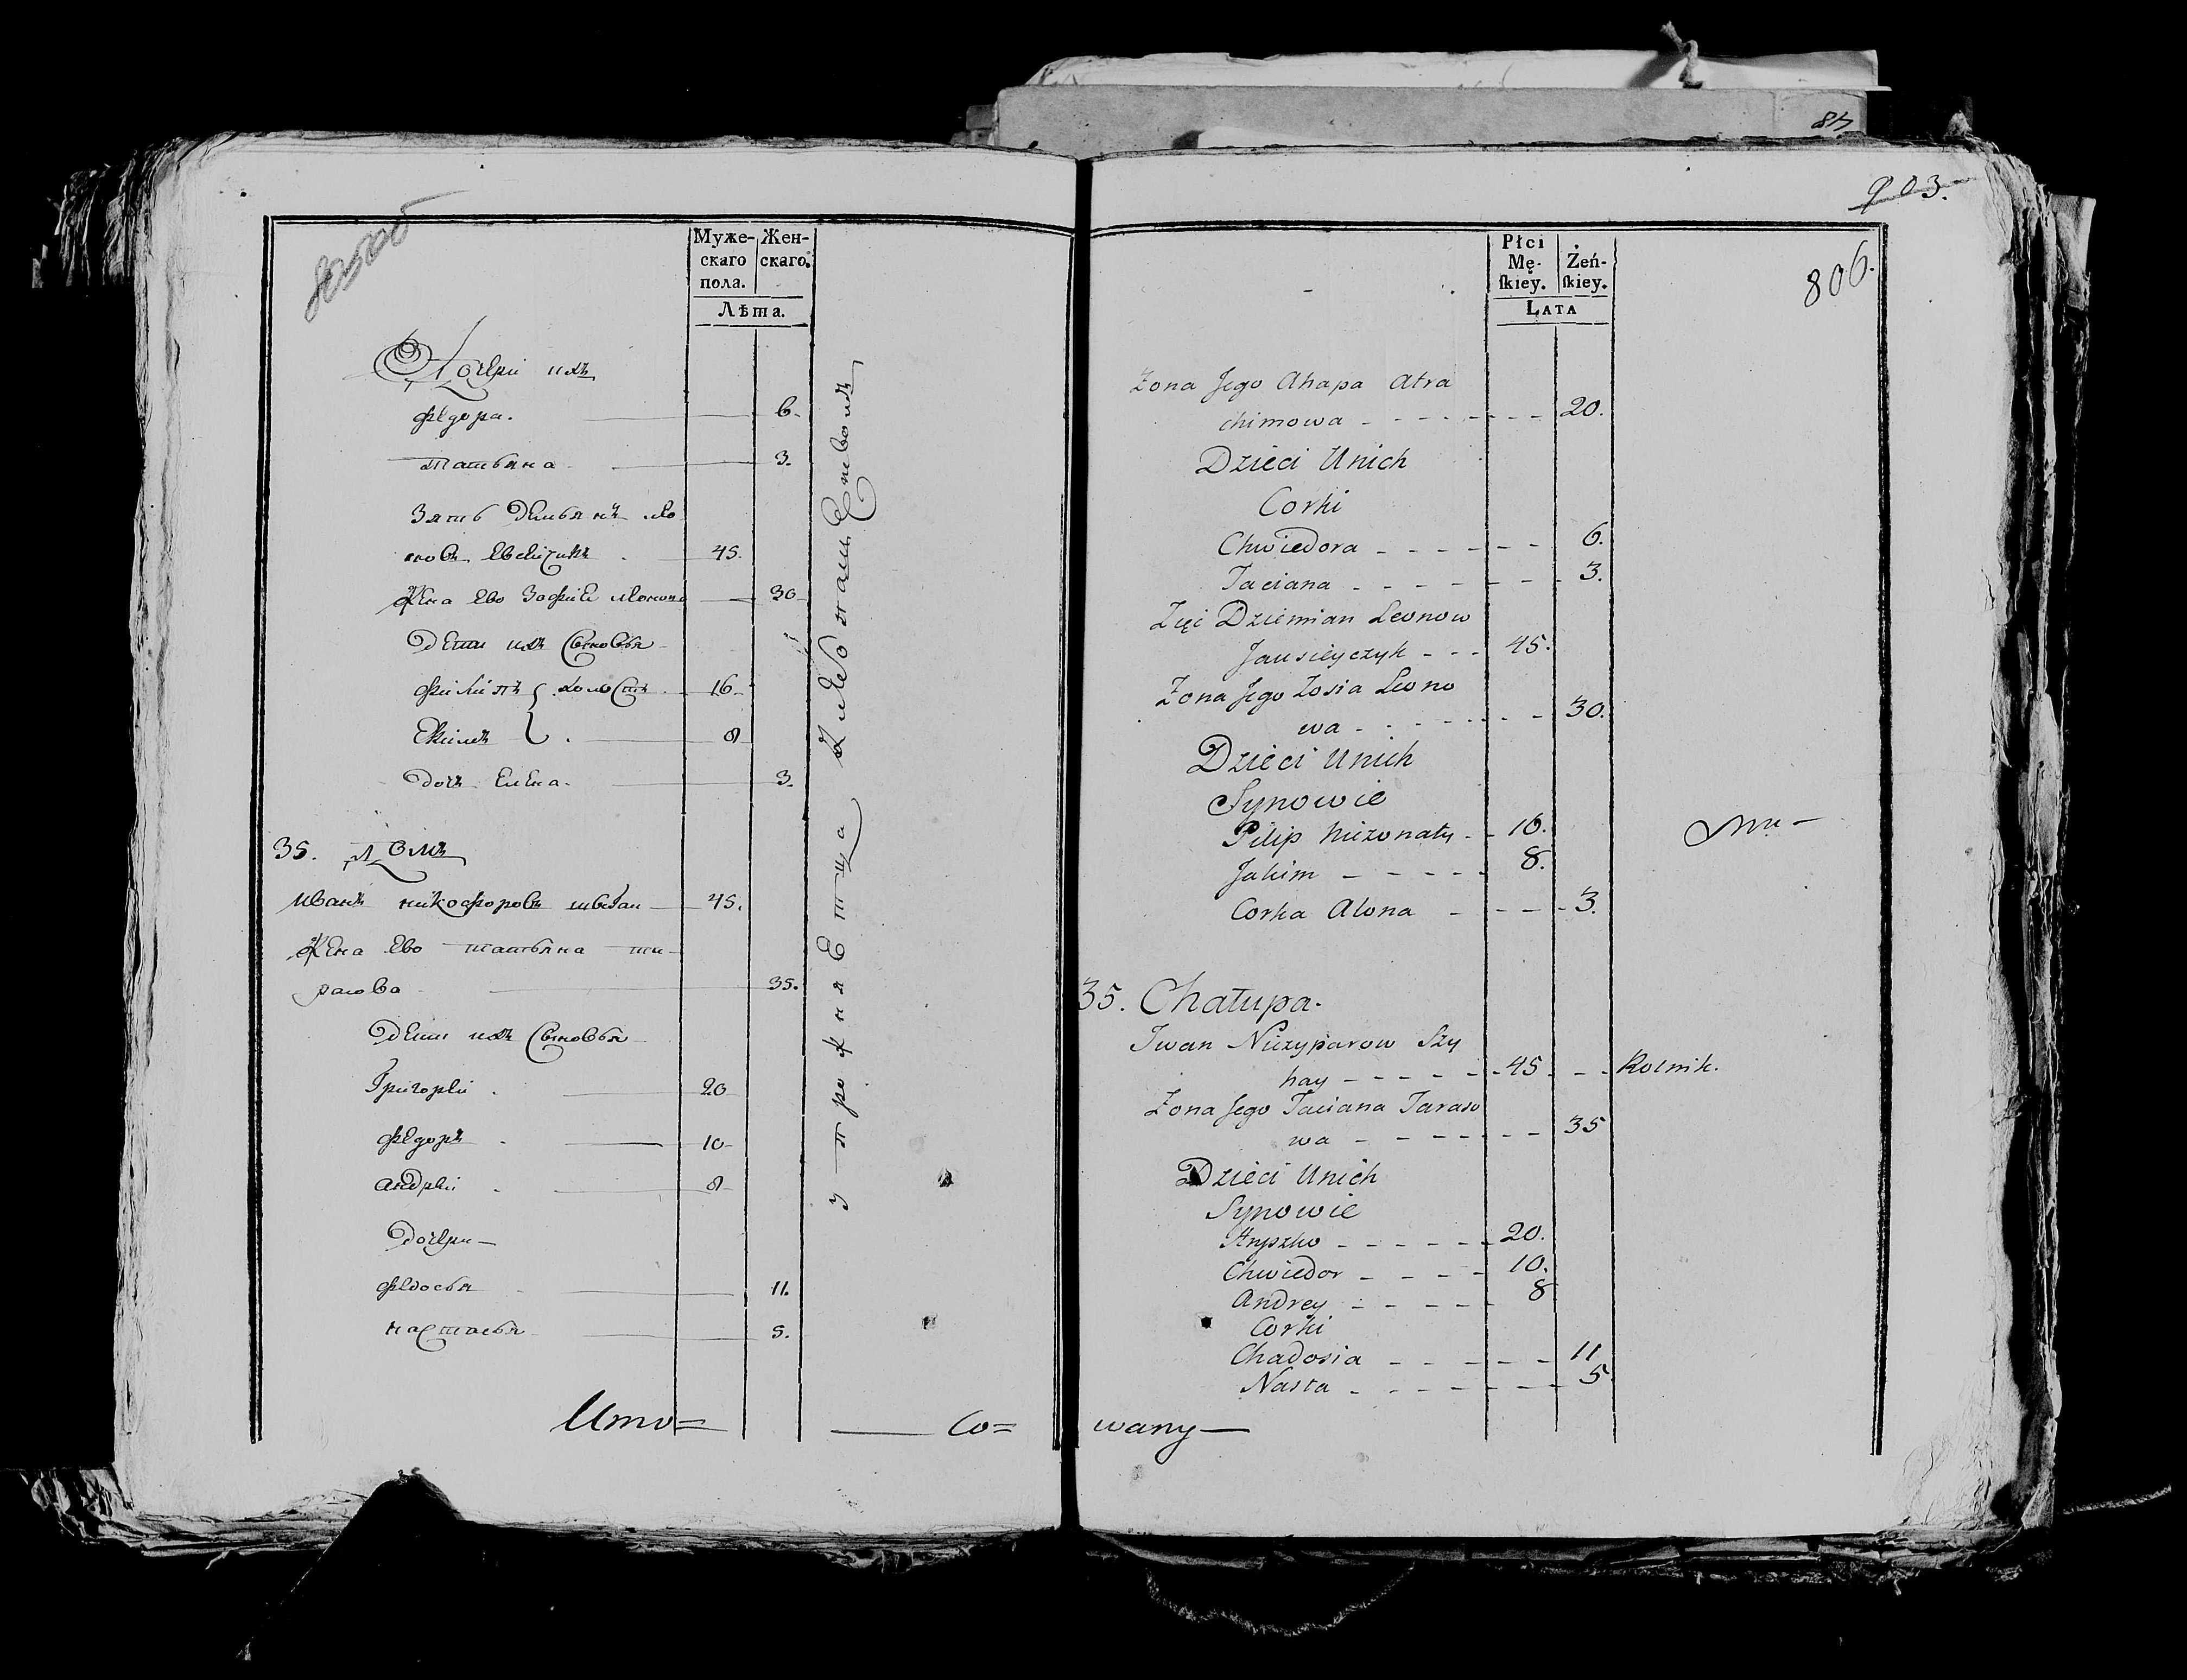 Муже-
скаго
пола.
Жен-
скаго.
Лѣта.
Дочери ихъ
Федора. 6.
Татьяна 3.
Зять Демьянъ Ле
новъ 45.
Жена Ево Зофие Леонова 30
Дети ихъ Сыновья
Филипъ холостъ 16
Екимъ 8
Дочь Елена. 3.
35. Домъ
Иванъ Никофоровъ 45.
Жена Ево Татьяна Та-
расова 35.
Дети ихъ Сыновья
Григорей 20
Федоръ 10
Андрей 8
Дочери
Федосья 11.
Настасья 5.
Упражняетца Хлебопашествомъ
Ито=
Со=
48
903.
806.
Płci
Mę-
ſkiey.
Żeń-
ſkiey.
LATA
Zona Jego Ahapa Atra
chimowa 20.
Dzieci Unich
Corki
Chwiedora 6.
Taciana 3.
Zięć Dziemian Leonow
Jausieyczyk 45.
Zona Jego Zosia Leono
wa 30.
Dzieci Unich
Synowie
Pilip Niezonaty 16.
Jakim 8.
Corka Alona 3.
35. Chałupa.
Iwan Niczyparow Szy
hay 45 Rolnik.
Zona Jego Taciana Taraso
wa 35
Dzieci Unich
Synowie
Hryszko 20.
Chwiedor 10.
Andrey 8
Corki
Chadosia 11
Nasta 5
wany